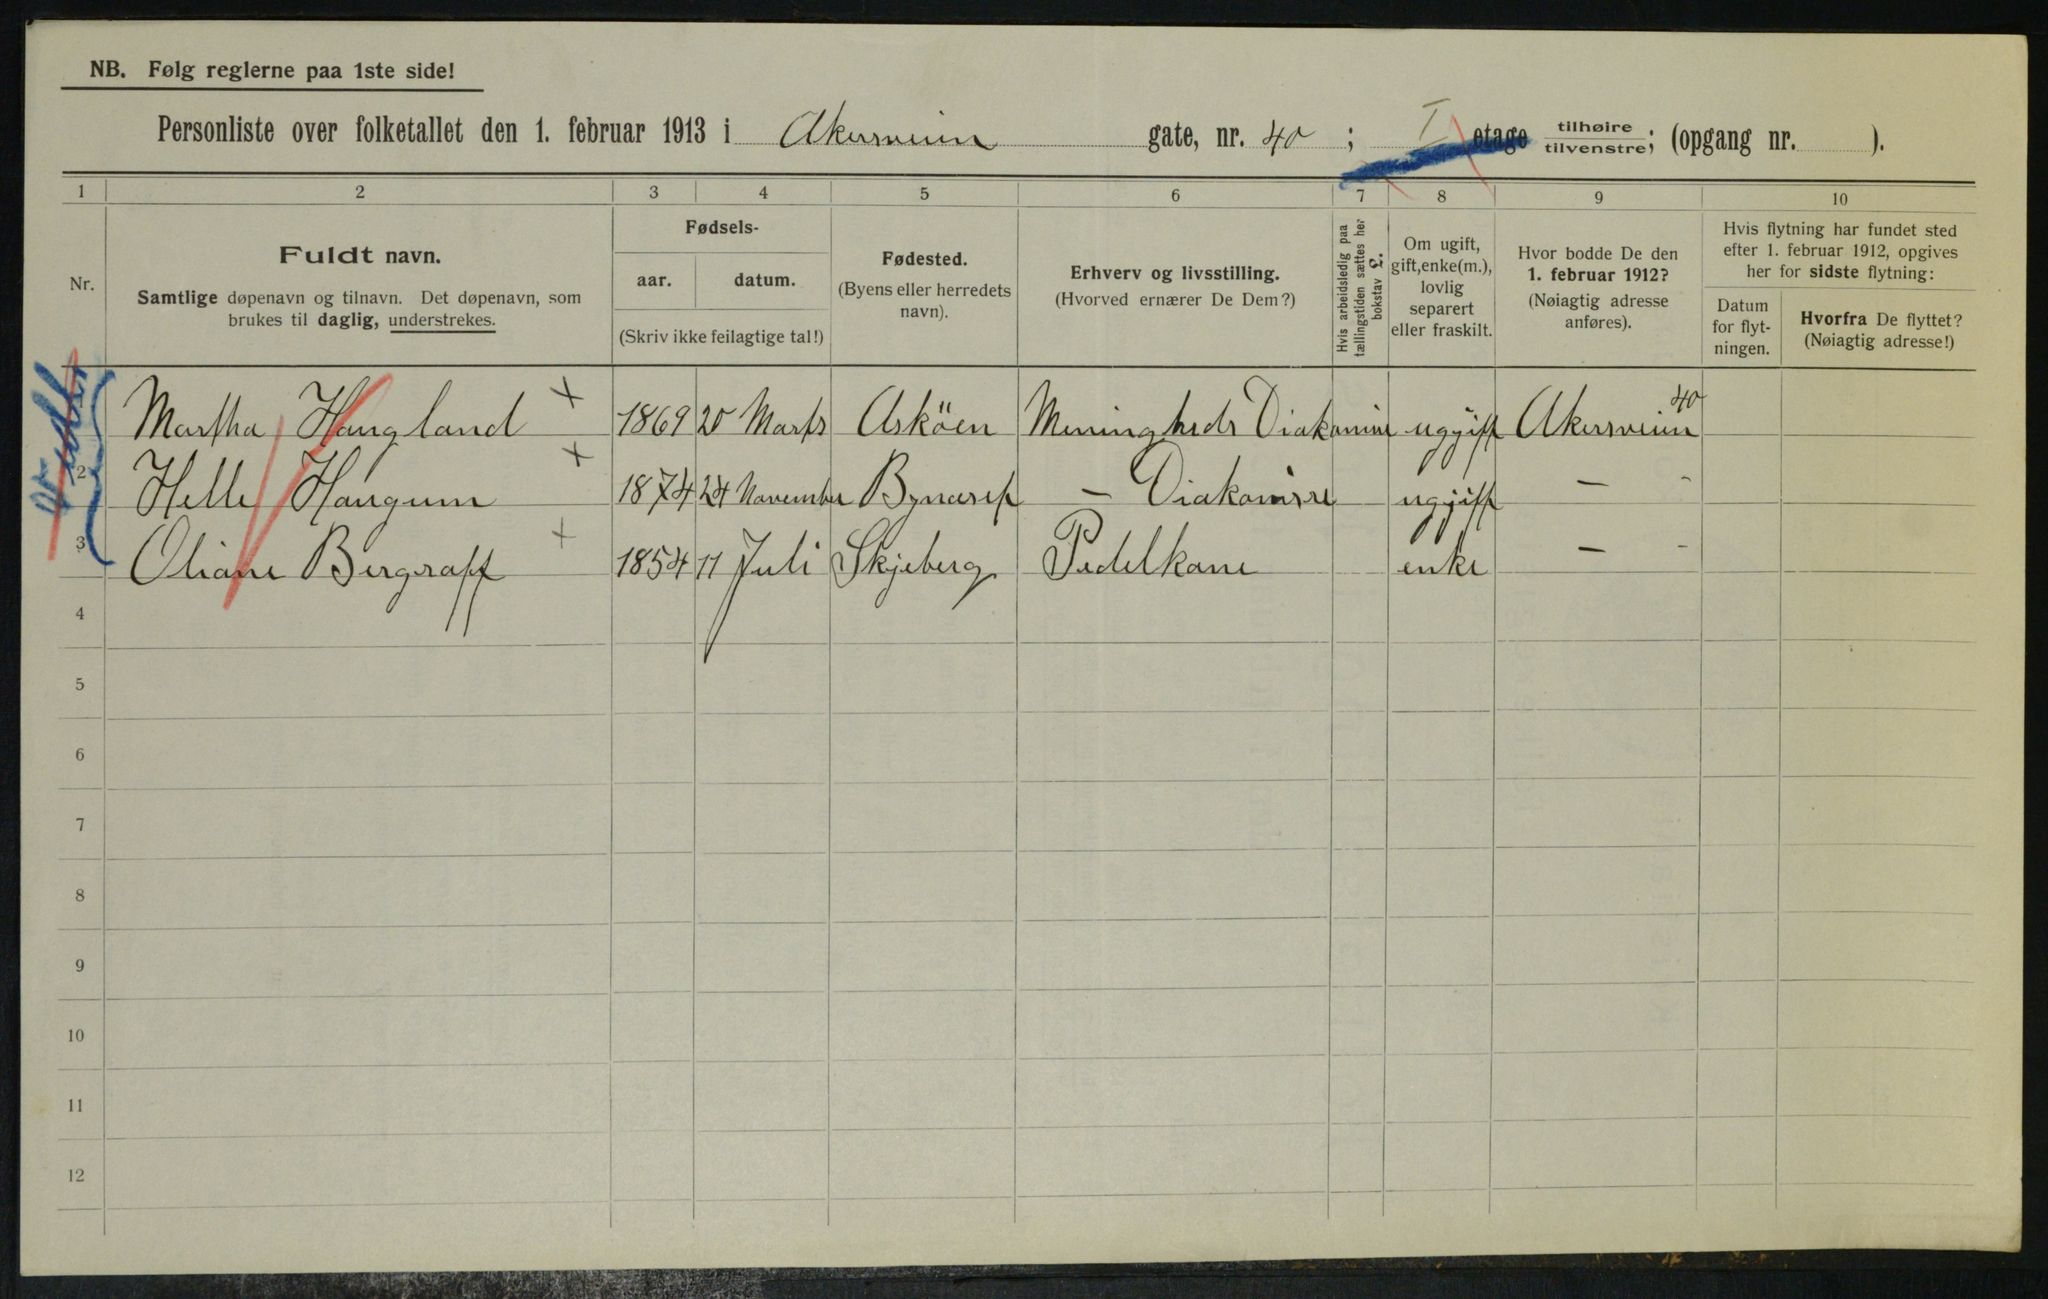 NB. Følg reglerne paa 1ste side!
Personliste over folketallet den 1. februar 1913 i Akersveien gate, nr. 40; I etage tilhøire tilvenstre; (opgang nr. ).
1 2 3 4 5 6 7 8 9 10
Nr.
Fuldt navn.
Samtlige døpenavn og tilnavn. Det døpenavn, som
brukes til daglig, understrekes.
Fødsels-
aar. datum.
(Skriv ikke feilagtige tal!)
Fødested.
(Byens eller herredets
navn).
Erhverv og livsstilling.
(Hvorved ernærer De Dem?)
Hvis arbeidsledig paa
tællingstiden sættes her
bokstav L.
Om ugift,
gift, enke(m.),
lovlig
separert
eller fraskilt.
Hvor bodde De den
1. februar 1912?
(Nøiagtig adresse
anføres).
Hvis flytning har fundet sted
efter 1. februar 1912, opgives
her for sidste flytning:
Datum
for flyt-
ningen.
Hvorfra De flyttet?
(Nøiagtig adresse!)
1 Martha Haugland × 1869 20 Marts Asköen Menigheds Diakonisse ugift Akersveien 40
2 Helle Haugum × 1874 24 November Bynæset – Diakonisse ugift – -
3 Oliane Bergraff × 1854 11 Juli Skjeberg Pedelkone enke – -
4
5
6
7
8
9
10
11
12